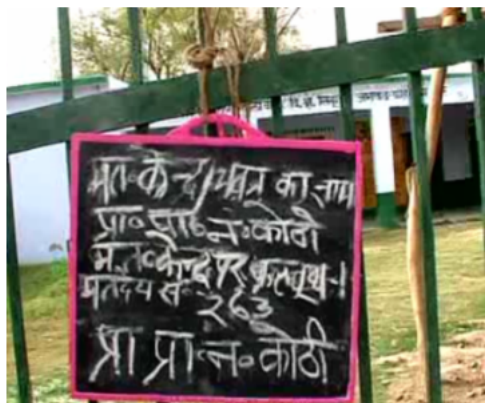 मत॰केन्द्र/भवन का नाम
प्रा॰ पा॰ न॰ कोठी
मत॰केन्द्र पर कुल बूथ-1
मतदेय सं॰
263
प्रा प्रा॰ न॰ कोठी